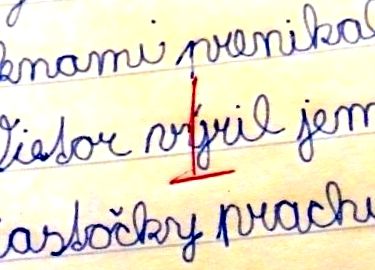 knami prenikal
Vietor výril jem
iastočky prachu